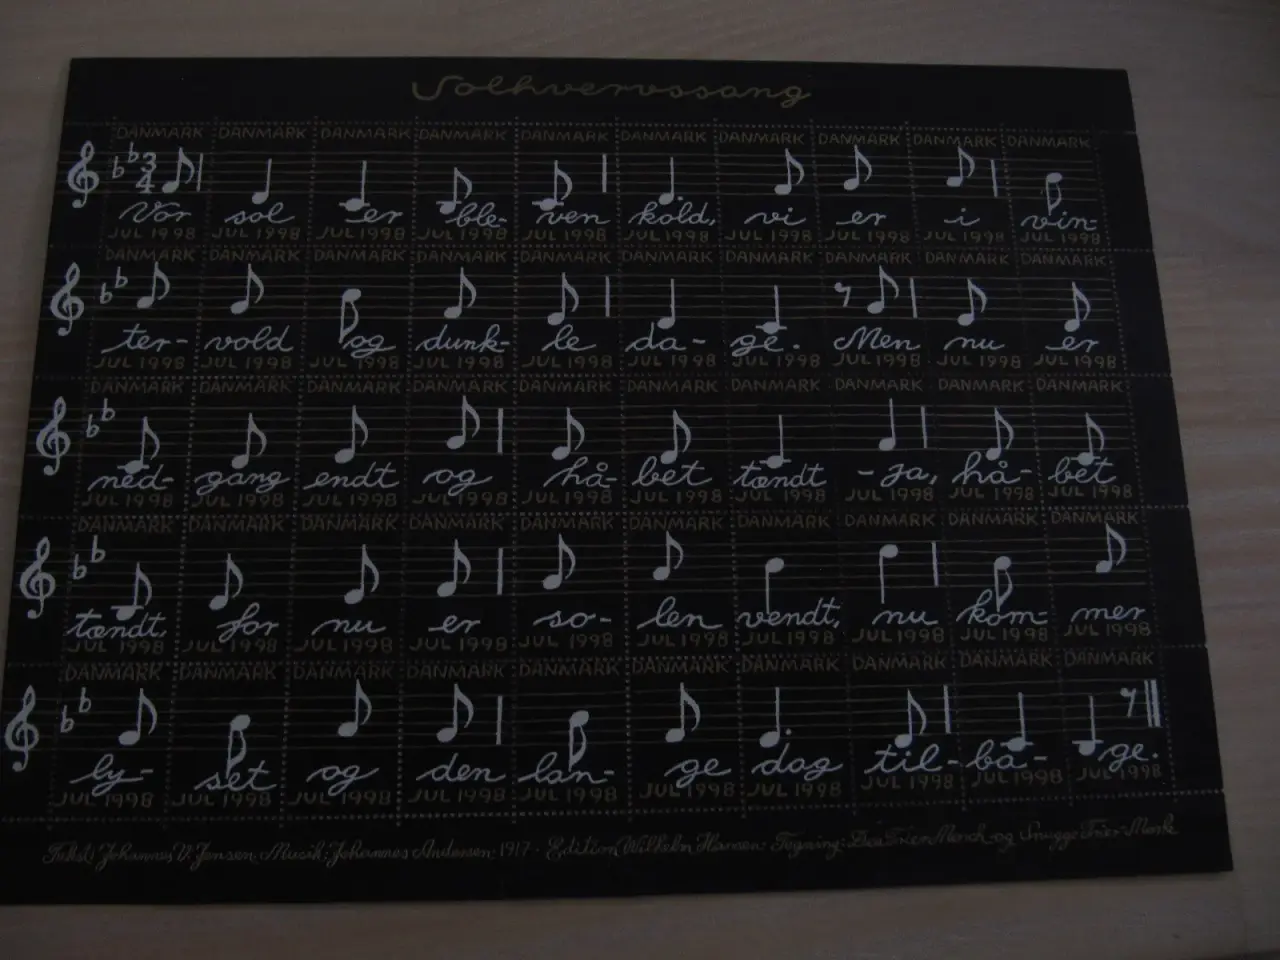 Solhvervssang
DANMARK DANMARK DANMARK DANMARK DANMARK DANMARK DANMARK DANMARK DANMARK DANMARK
3
4
Vor sol er ble- ven kold, vi er i vin-
JUL 1998 JUL 1998 JUL 1998 JUL 1998 JUL 1998 JUL 1998 JUL 1998 JUL 1998 JUL 1998 JUL 1998
DANMARK DANMARK DANMARK DANMARK DANMARK DANMARK DANMARK DANMARK DANMARK DANMARK
ter- vold og dunk- le da- ge. Men nu er
JUL 1998 JUL 1998 JUL 1998 JUL 1998 JUL 1998 JUL 1998 JUL 1998 JUL 1998 JUL 1998 JUL 1998
DANMARK DANMARK DANMARK DANMARK DANMARK DANMARK DANMARK DANMARK DANMARK DANMARK
ned- gang endt og hå- bet tændt - ja, hå- bet
JUL 1998 JUL 1998 JUL 1998 JUL 1998 JUL 1998 JUL 1998 JUL 1998 JUL 1998 JUL 1998 JUL 1998
DANMARK DANMARK DANMARK DANMARK DANMARK DANMARK DANMARK DANMARK DANMARK DANMARK
tændt, for nu er so- len vendt, nu kom- mer
JUL 1998 JUL 1998 JUL 1998 JUL 1998 JUL 1998 JUL 1998 JUL 1998 JUL 1998 JUL 1998 JUL 1998
DANMARK DANMARK DANMARK DANMARK DANMARK DANMARK DANMARK DANMARK DANMARK DANMARK
ly- set og den lan- ge dag til- ba- ge.
JUL 1998 JUL 1998 JUL 1998 JUL 1998 JUL 1998 JUL 1998 JUL 1998 JUL 1998 JUL 1998 JUL 1998
Tekst: Johannes V. Jensen. Musik: Johannes Andersen 1917 · Edition Wilhelm Hansen · Tegning: Dea Trier Mørch og Snugge Trier Mørk